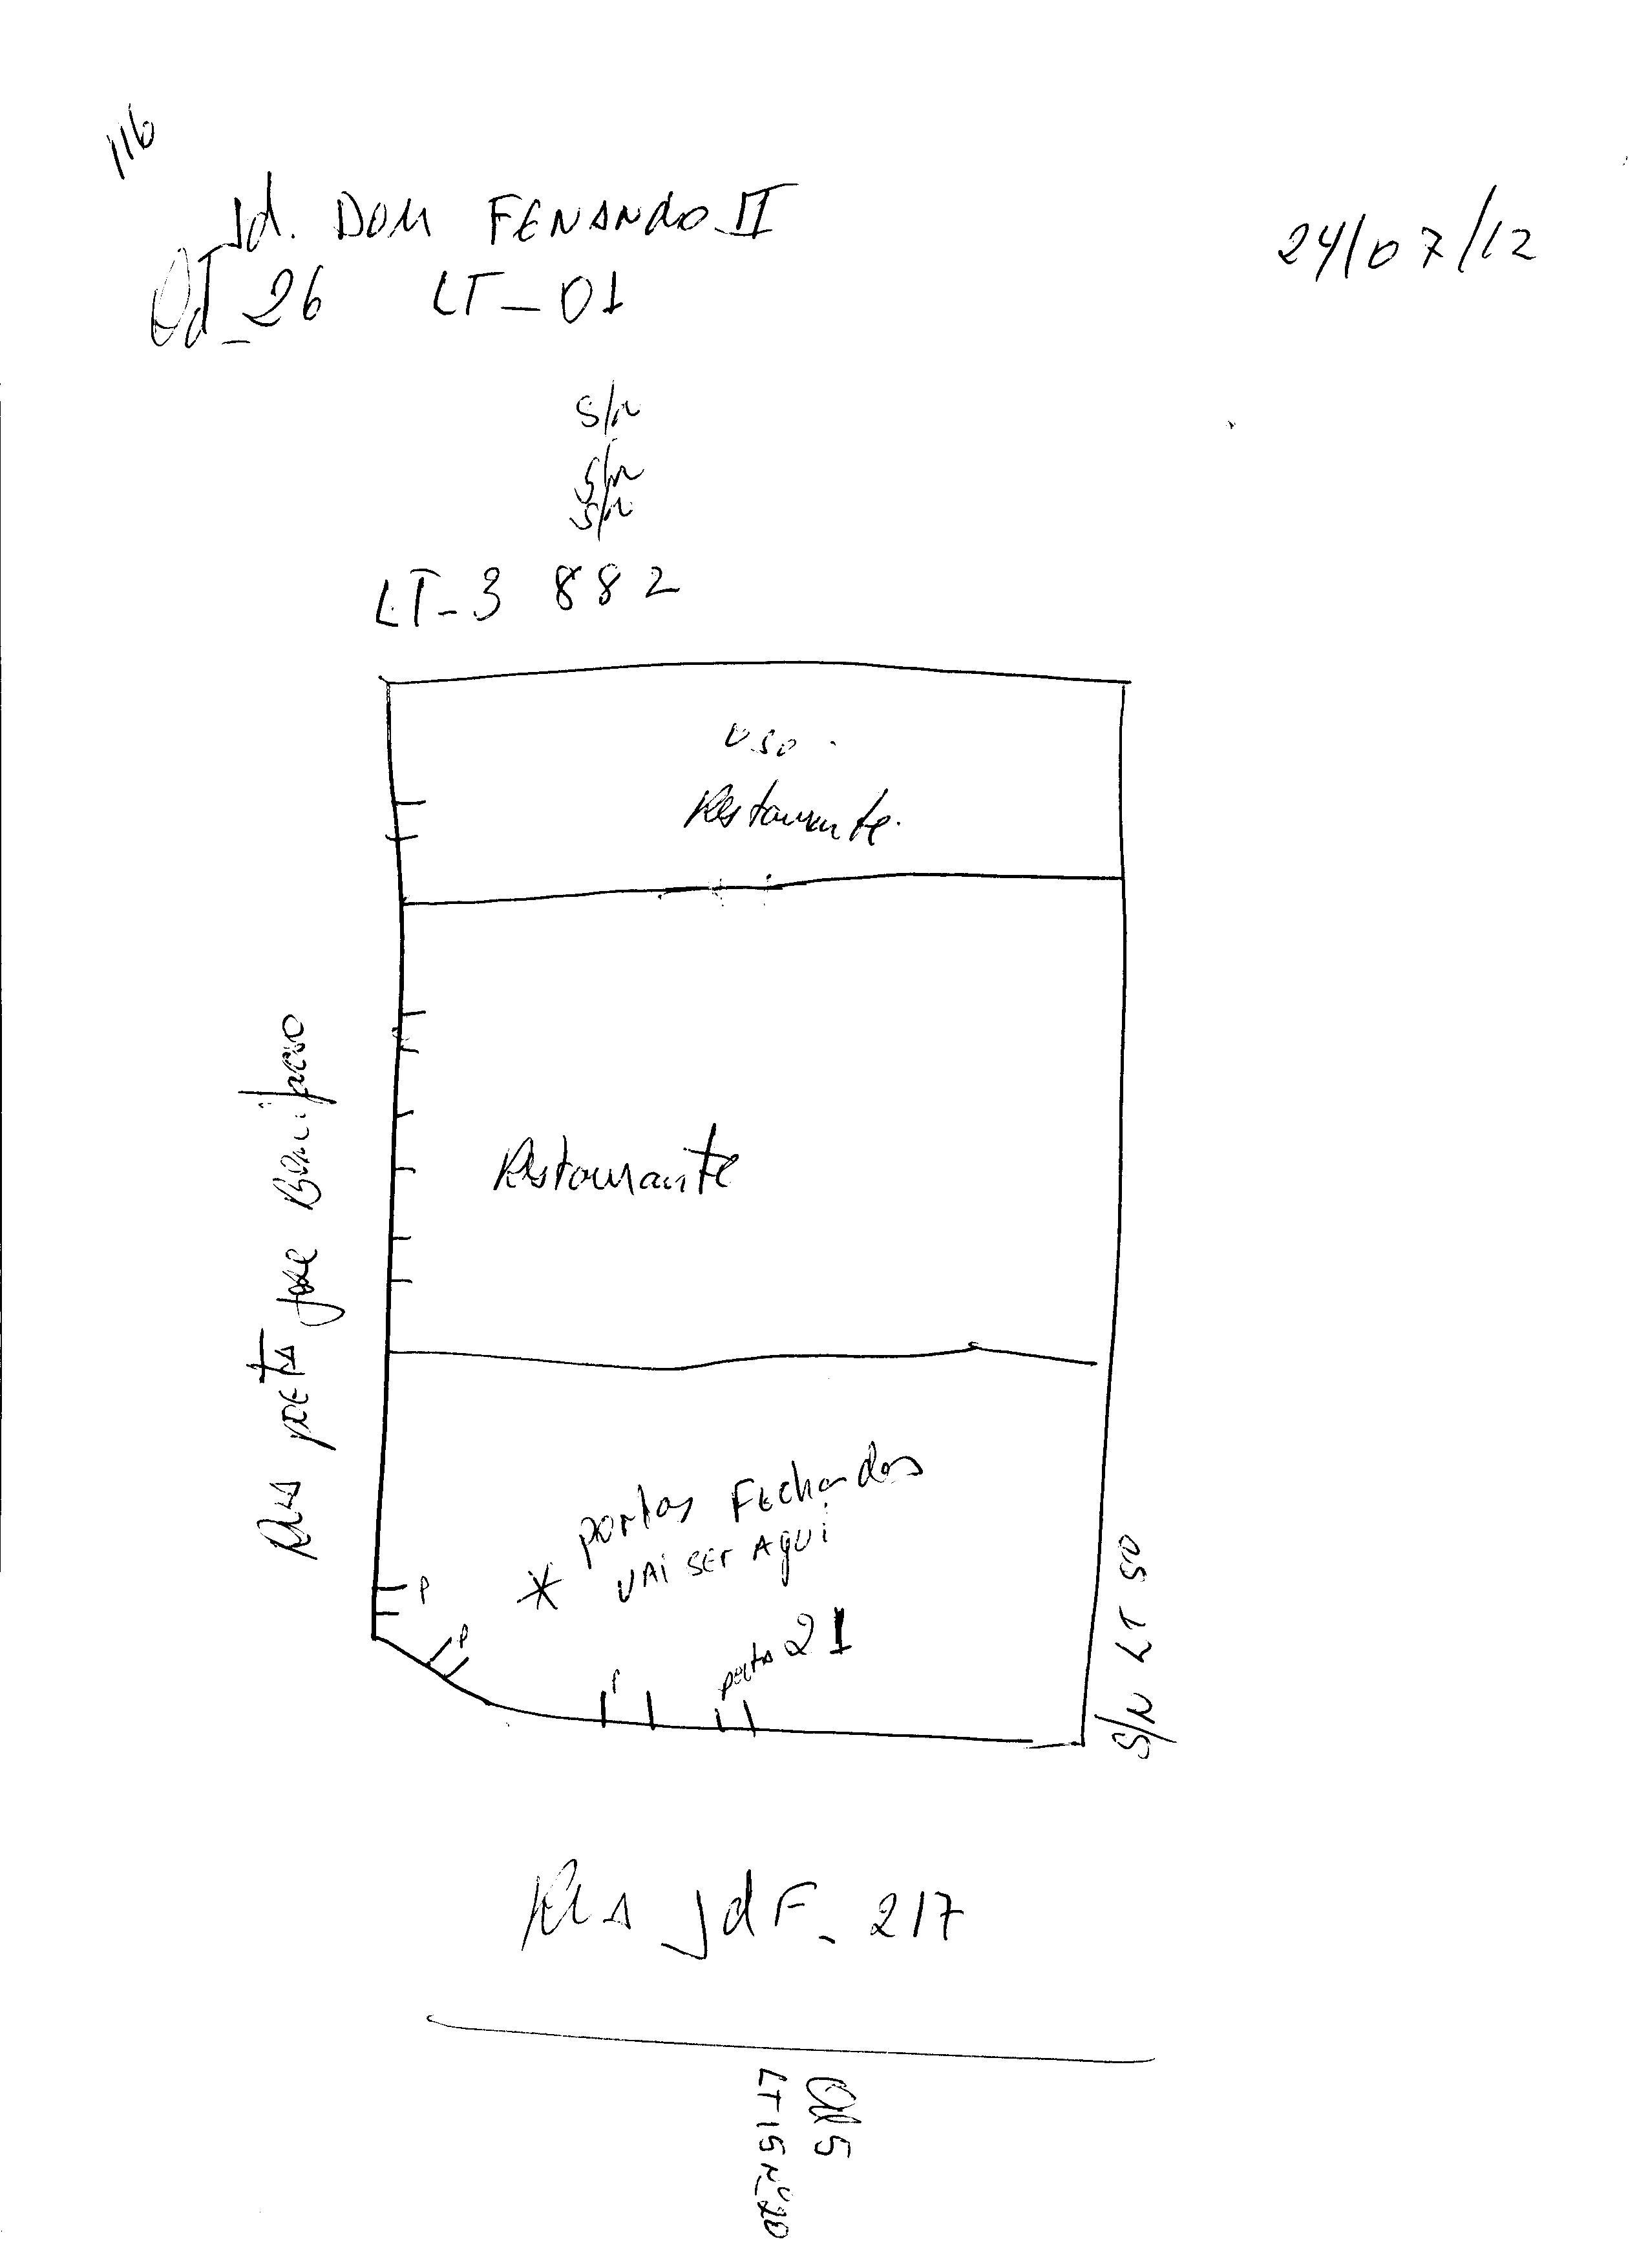 116
Jd. DOM FENANDO II
24/07/12
Qd_26 LT_01
S/N
S/N
S/N
LT_3 882
USO.
Restaurante.
Restaurante
Rua poeta Jose Bonifacio
portas Fechadas
* VAI SER AQUI
P
P
P
porta 21
S/N LT 50
Rua JdF_217
Qd 5
LT 15 N°